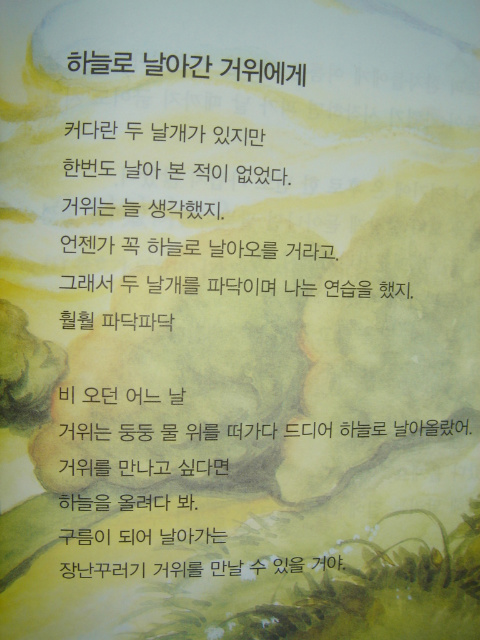 하늘로 날아간 거위에게
커다란 두 날개가 있지만
한번도 날아 본 적이 없었다.
거위는 늘 생각했지.
언젠가 꼭 하늘로 날아오를 거라고.
그래서 두 날개를 파닥이며 나는 연습을 했지.
훨훨 파닥파닥
비 오던 어느 날
거위는 둥둥 물 위를 떠가다 드디어 하늘로 날아올랐어.
거위를 만나고 싶다면
하늘을 올려다 봐.
구름이 되어 날아가는
장난꾸러기 거위를 만날 수 있을 거야.